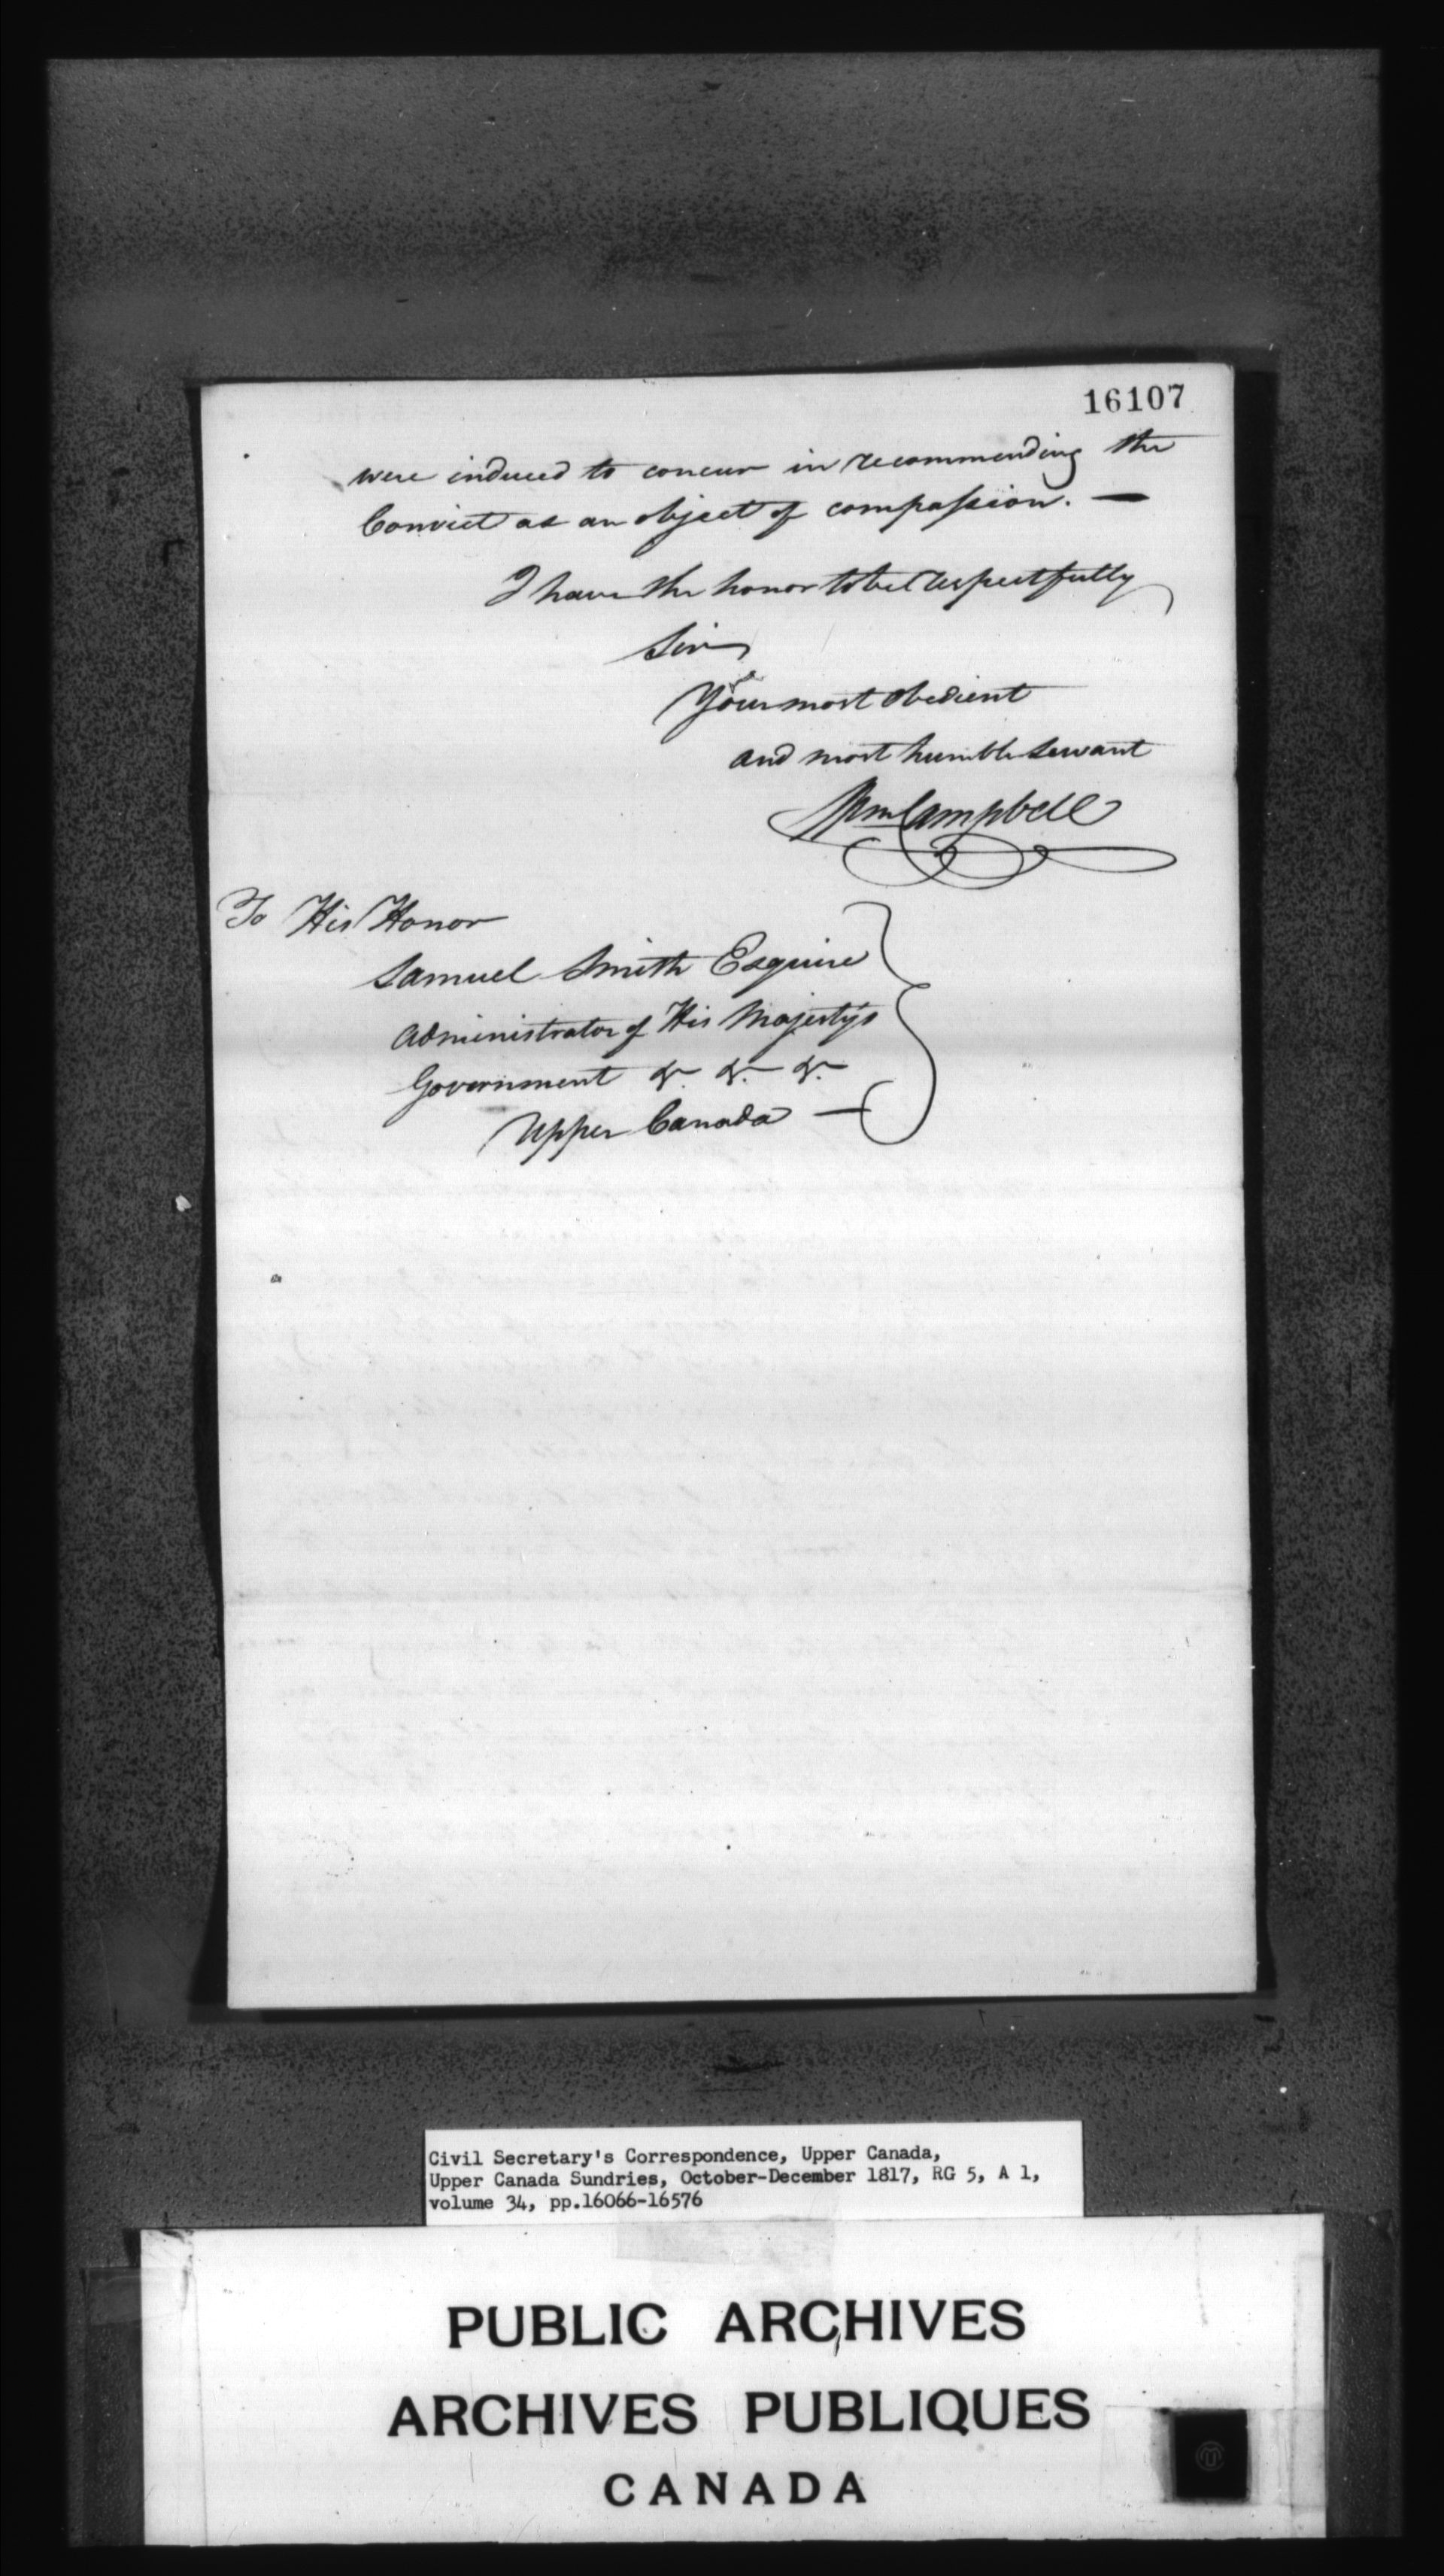 16107
were induced to concur in recommending the
Convict as an object of compassion. —
I have the honor to be respectfully
Sir
Your most obedient
and most humble servant
Wm Campbell
To His Honor
Samuel Smith Esquire
Administrator of His Majesty's
Government &c. &c. &c.
Upper Canada —
Civil Secretary's Correspondence, Upper Canada,
Upper Canada Sundries, October-December 1817, RG 5, A 1,
volume 34, pp.16066-16576
PUBLIC ARCHIVES
ARCHIVES PUBLIQUES
CANADA